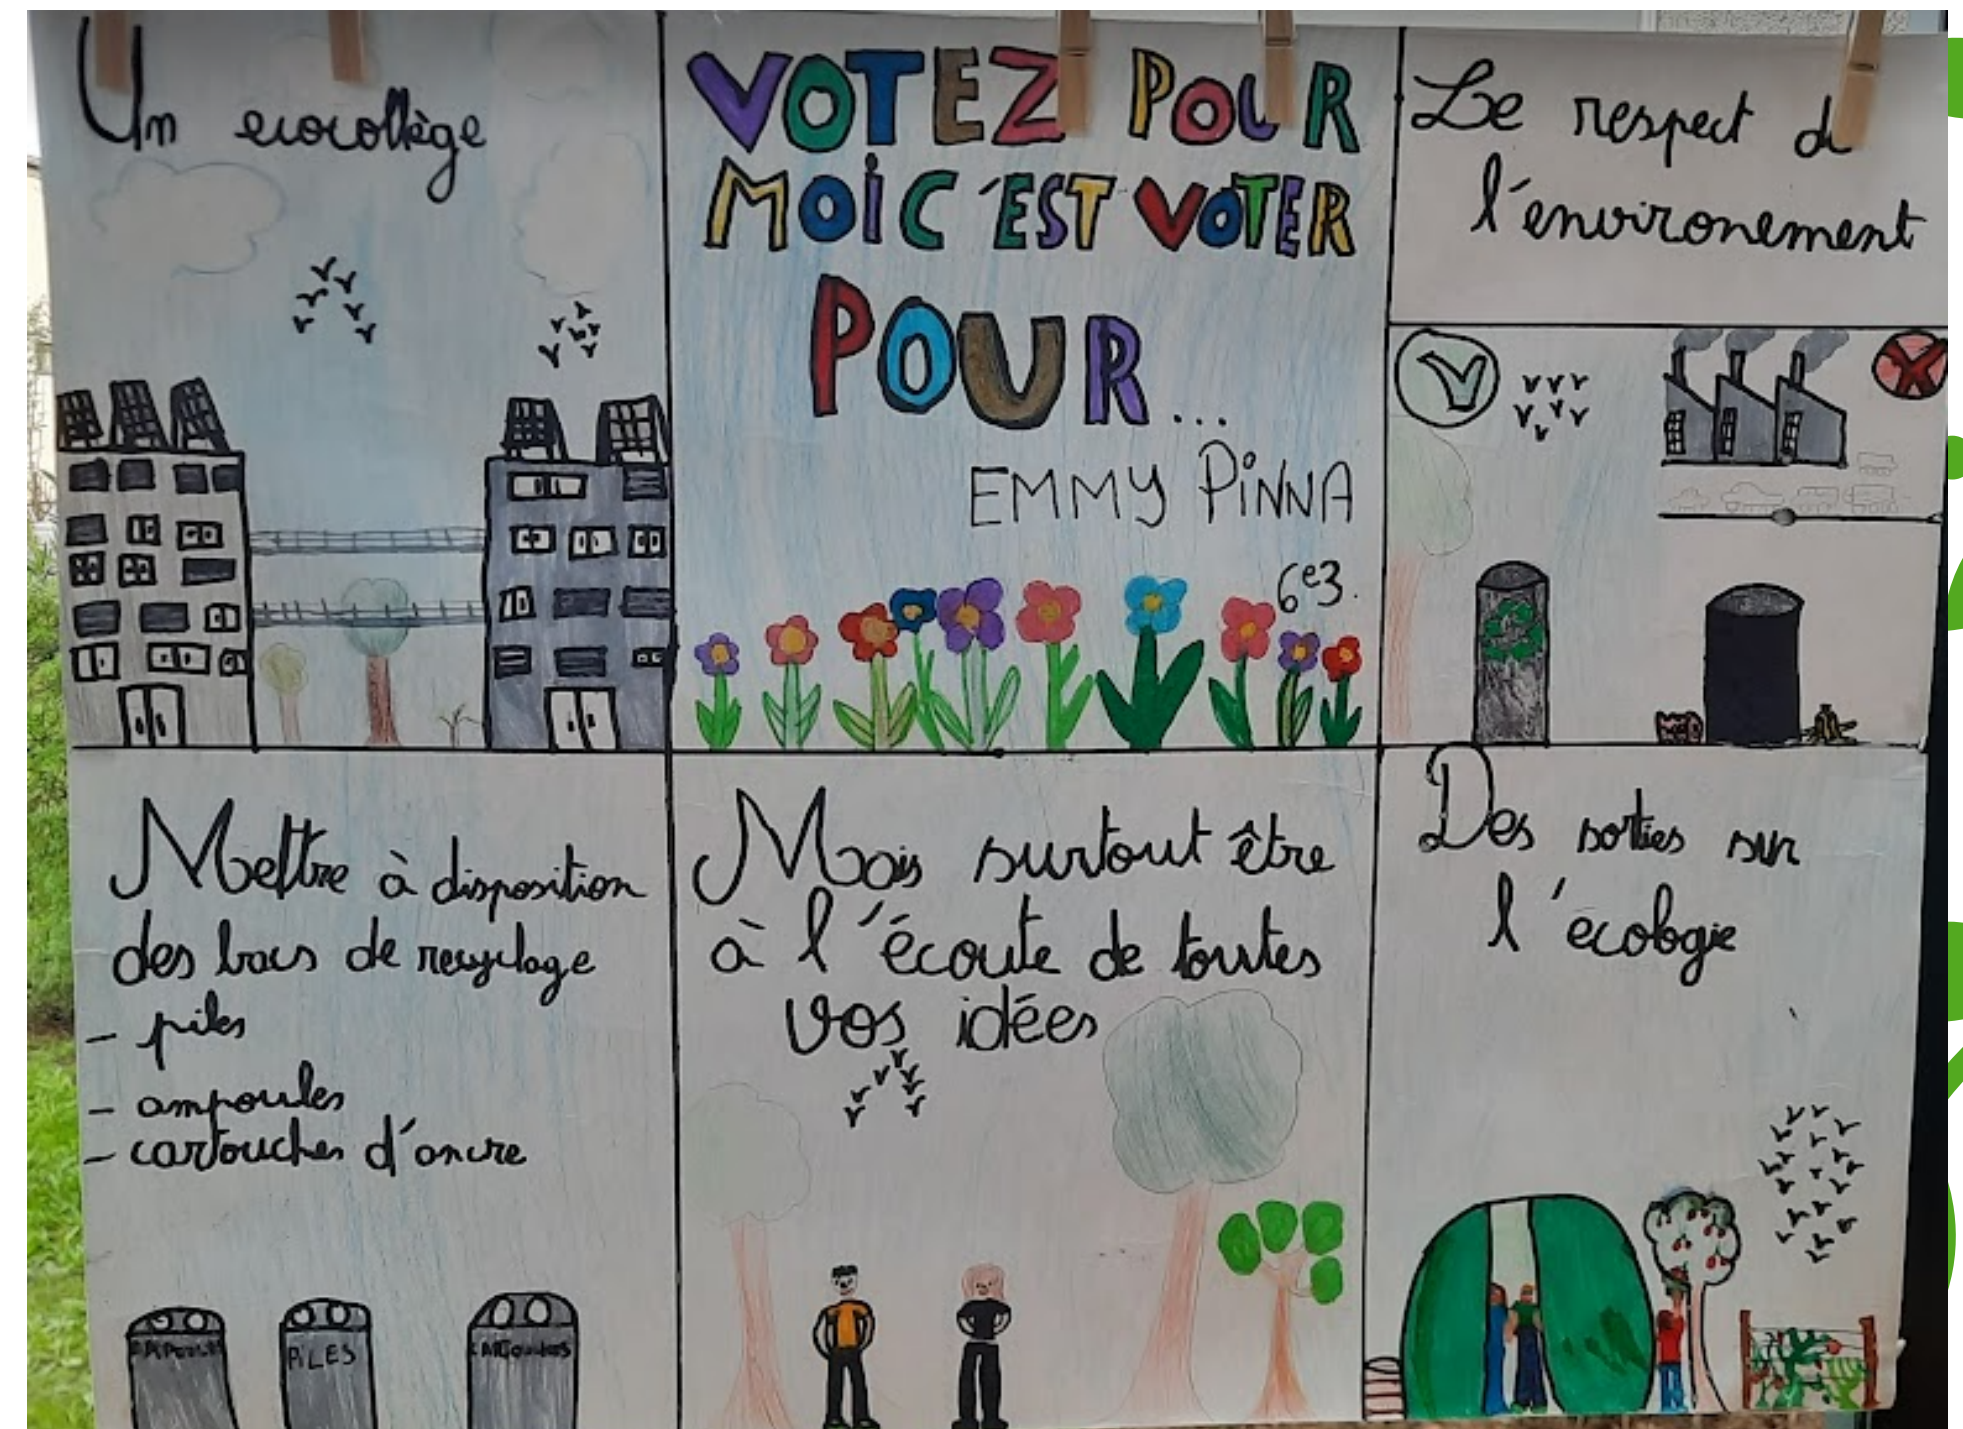 Un ecocollège
VOTEZ POUR
MOI C'EST VOTER
POUR...
EMMY PINNA
6e3.
Le respect de
l'environement
Mettre à disposition
des bacs de recyclage
- piles
- ampoules
- cartouches d'encre
AMPOULES
PILES
CARTOUCHES
Mais surtout être
à l'écoute de toutes
vos idées
Des sorties sur
l'écologie